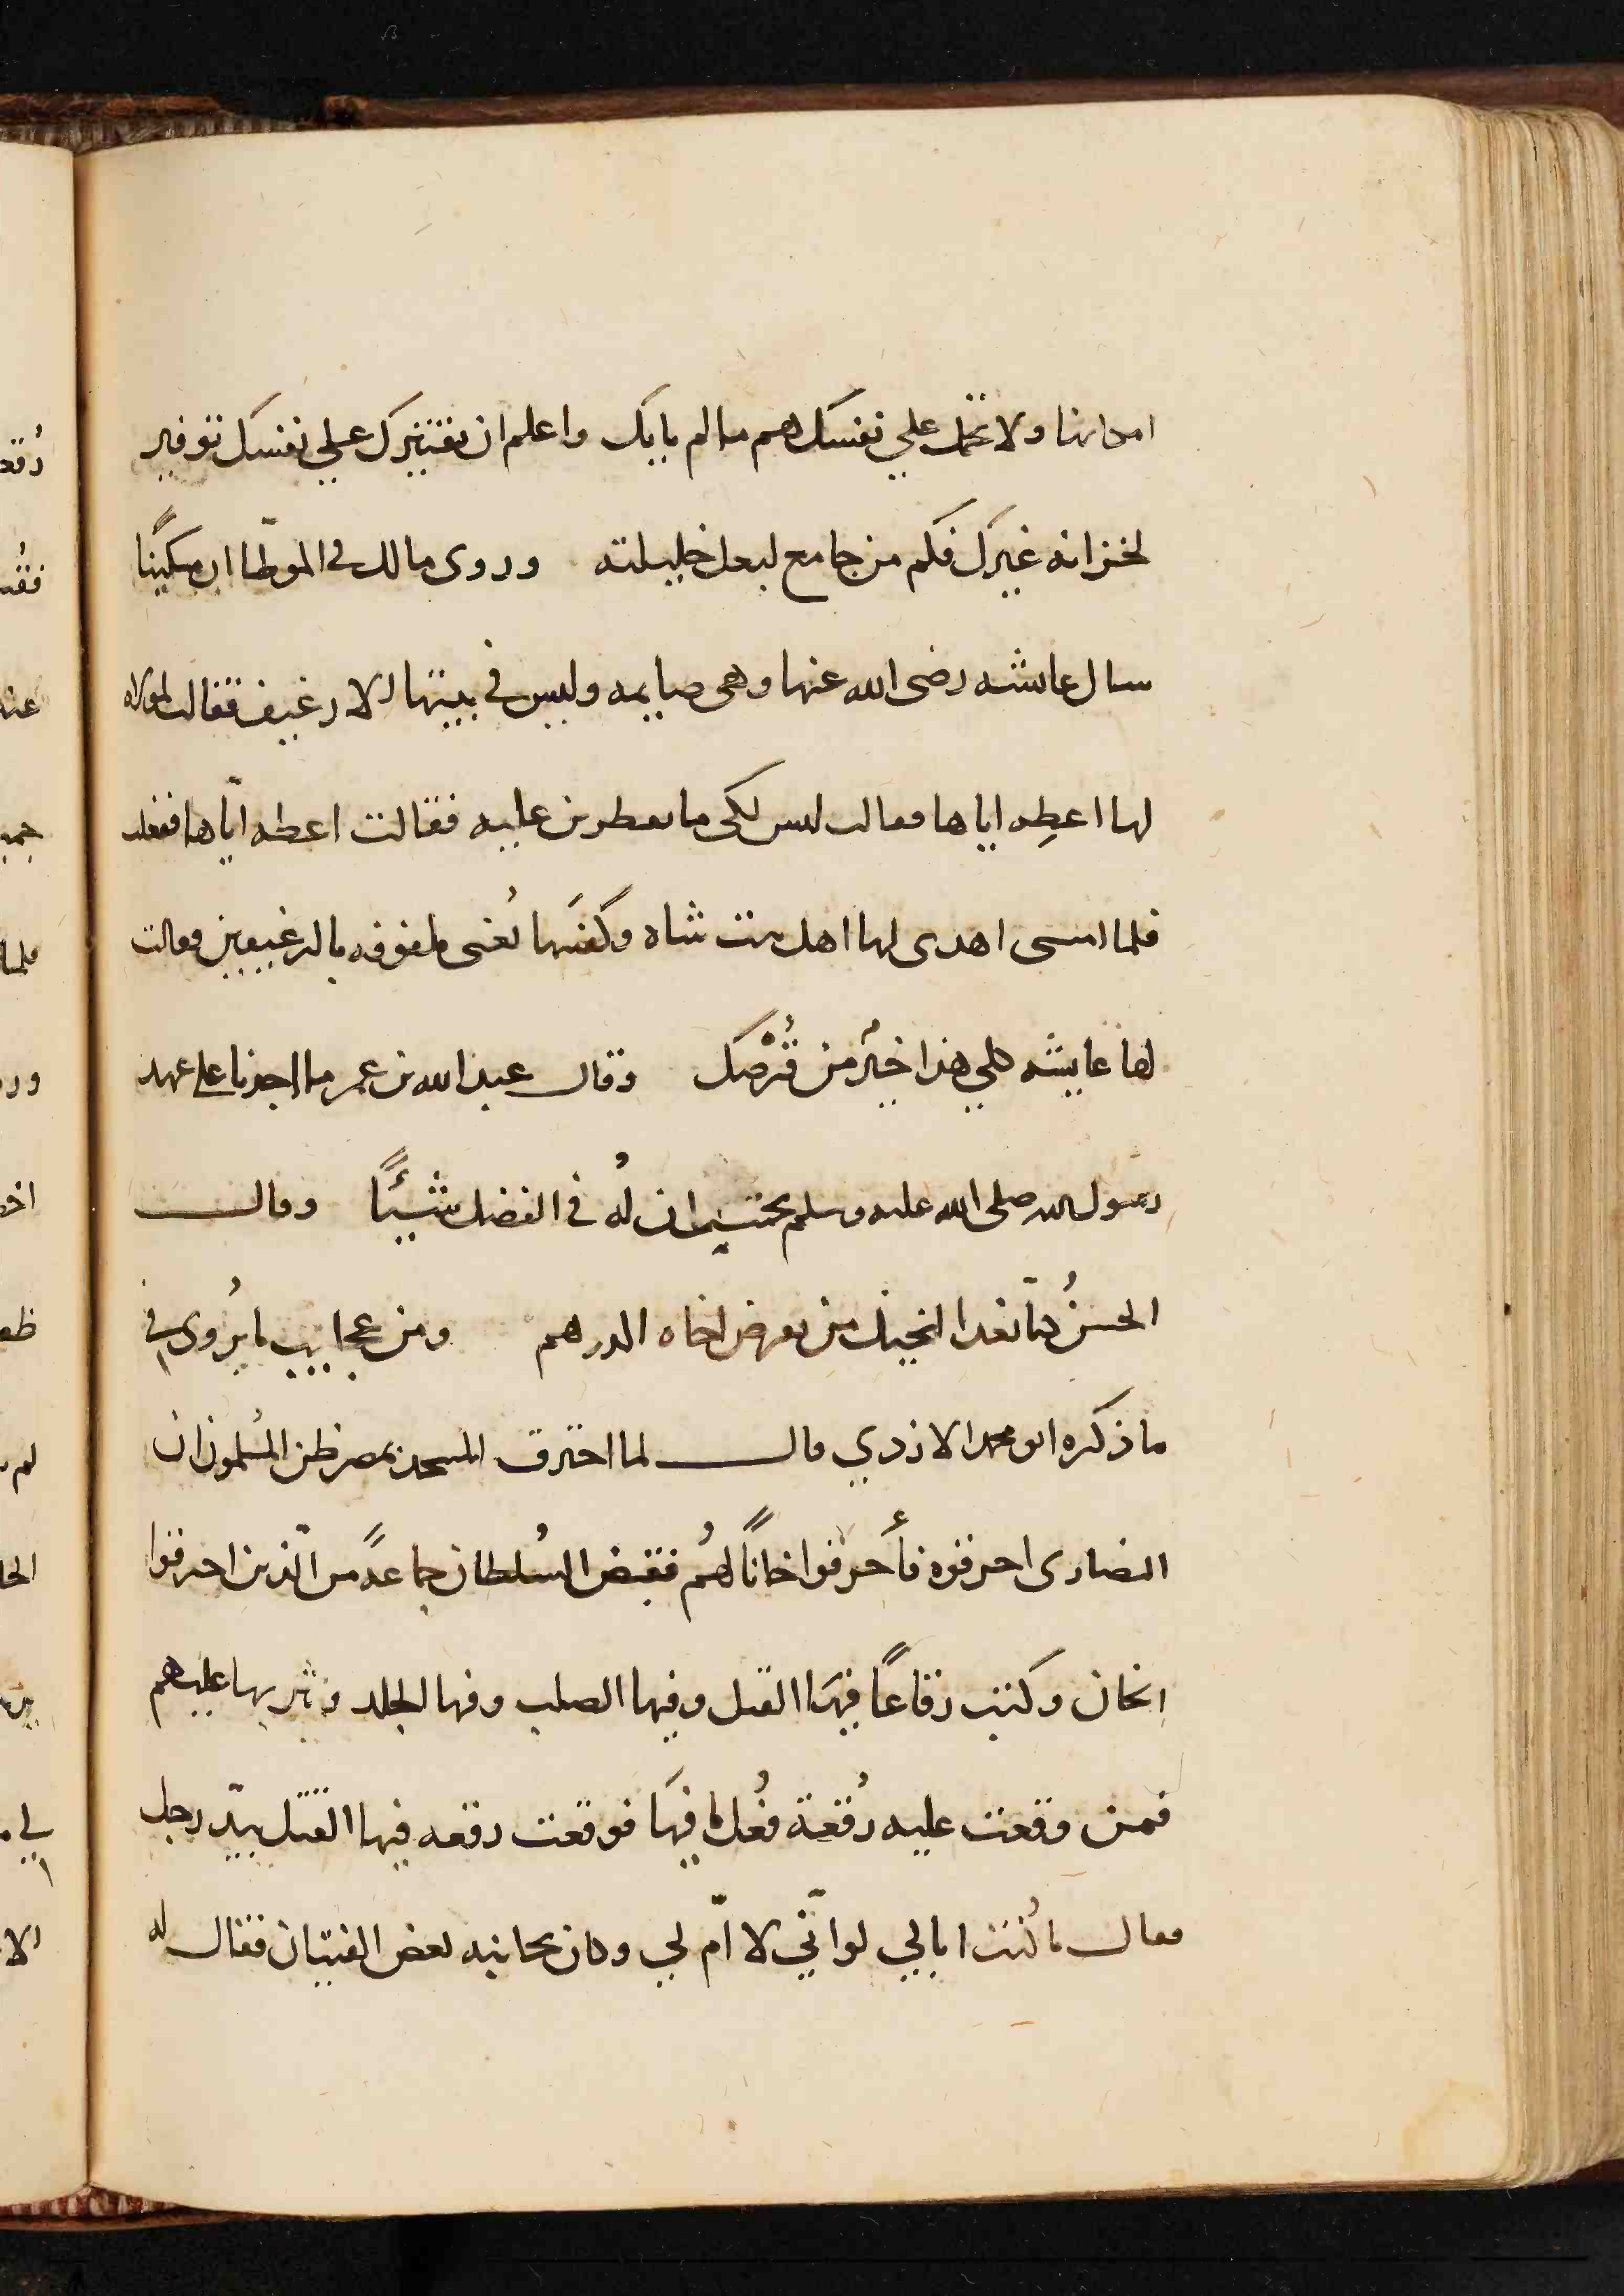 امكانها ولا تحمل علي نفسك هم ما لم ياتك واعلم ان تقتيرك علي نفسك توفير
لخزانه غيرك فكم من جامع لبعل خليلته وروى مالك في الموطّا ان مسكينًا
سال عايشه رضى الله عنها وهى صايمه وليس في بيتها الا رغيف فقالت لمولاه
لها اعطِه اياها فقالت ليس لكى ما تفطرين عليه فقالت اعطه ايّاها ففعلت
فلما امسى اهدى لها اهل بيت شاه وكفنَها يُعنى ملفوفه بالرغيفين فقالت
لها عايشه كلي هذا خيرٌ من قُرْصك وقال عبد الله بن عمر ما احدنا على عهد
رسول الله صلى الله عليه وسلم يحتسب ان لُه في الفضل شيئًا وقال
الحسنُ كنّا نعد البخيل من يقرض اخاه الدرهم ومن عجايب ما يُروى في
ما ذكره ابو محمد الازدي قال لما احترق المسجد بمصر ظن المُسلمون ان
النصارى احرقوه فأحرقوا خانًا لهُم فقبض السُلطان جماعةً من الّذين احرقوا
الخان وكتب رقاعًا فيهَا القتل وفيها الصلب وفيها الجلد ونثرها عليهم
فمن وقعت عليه رُقعة فُعل ما فيهَا فوقعت رقعه فيها القتل بيّد رجل
فقال ما كُنت ابالي لو انّي لا امّ لي وكان بجانبه بعض الفتيان فقال له